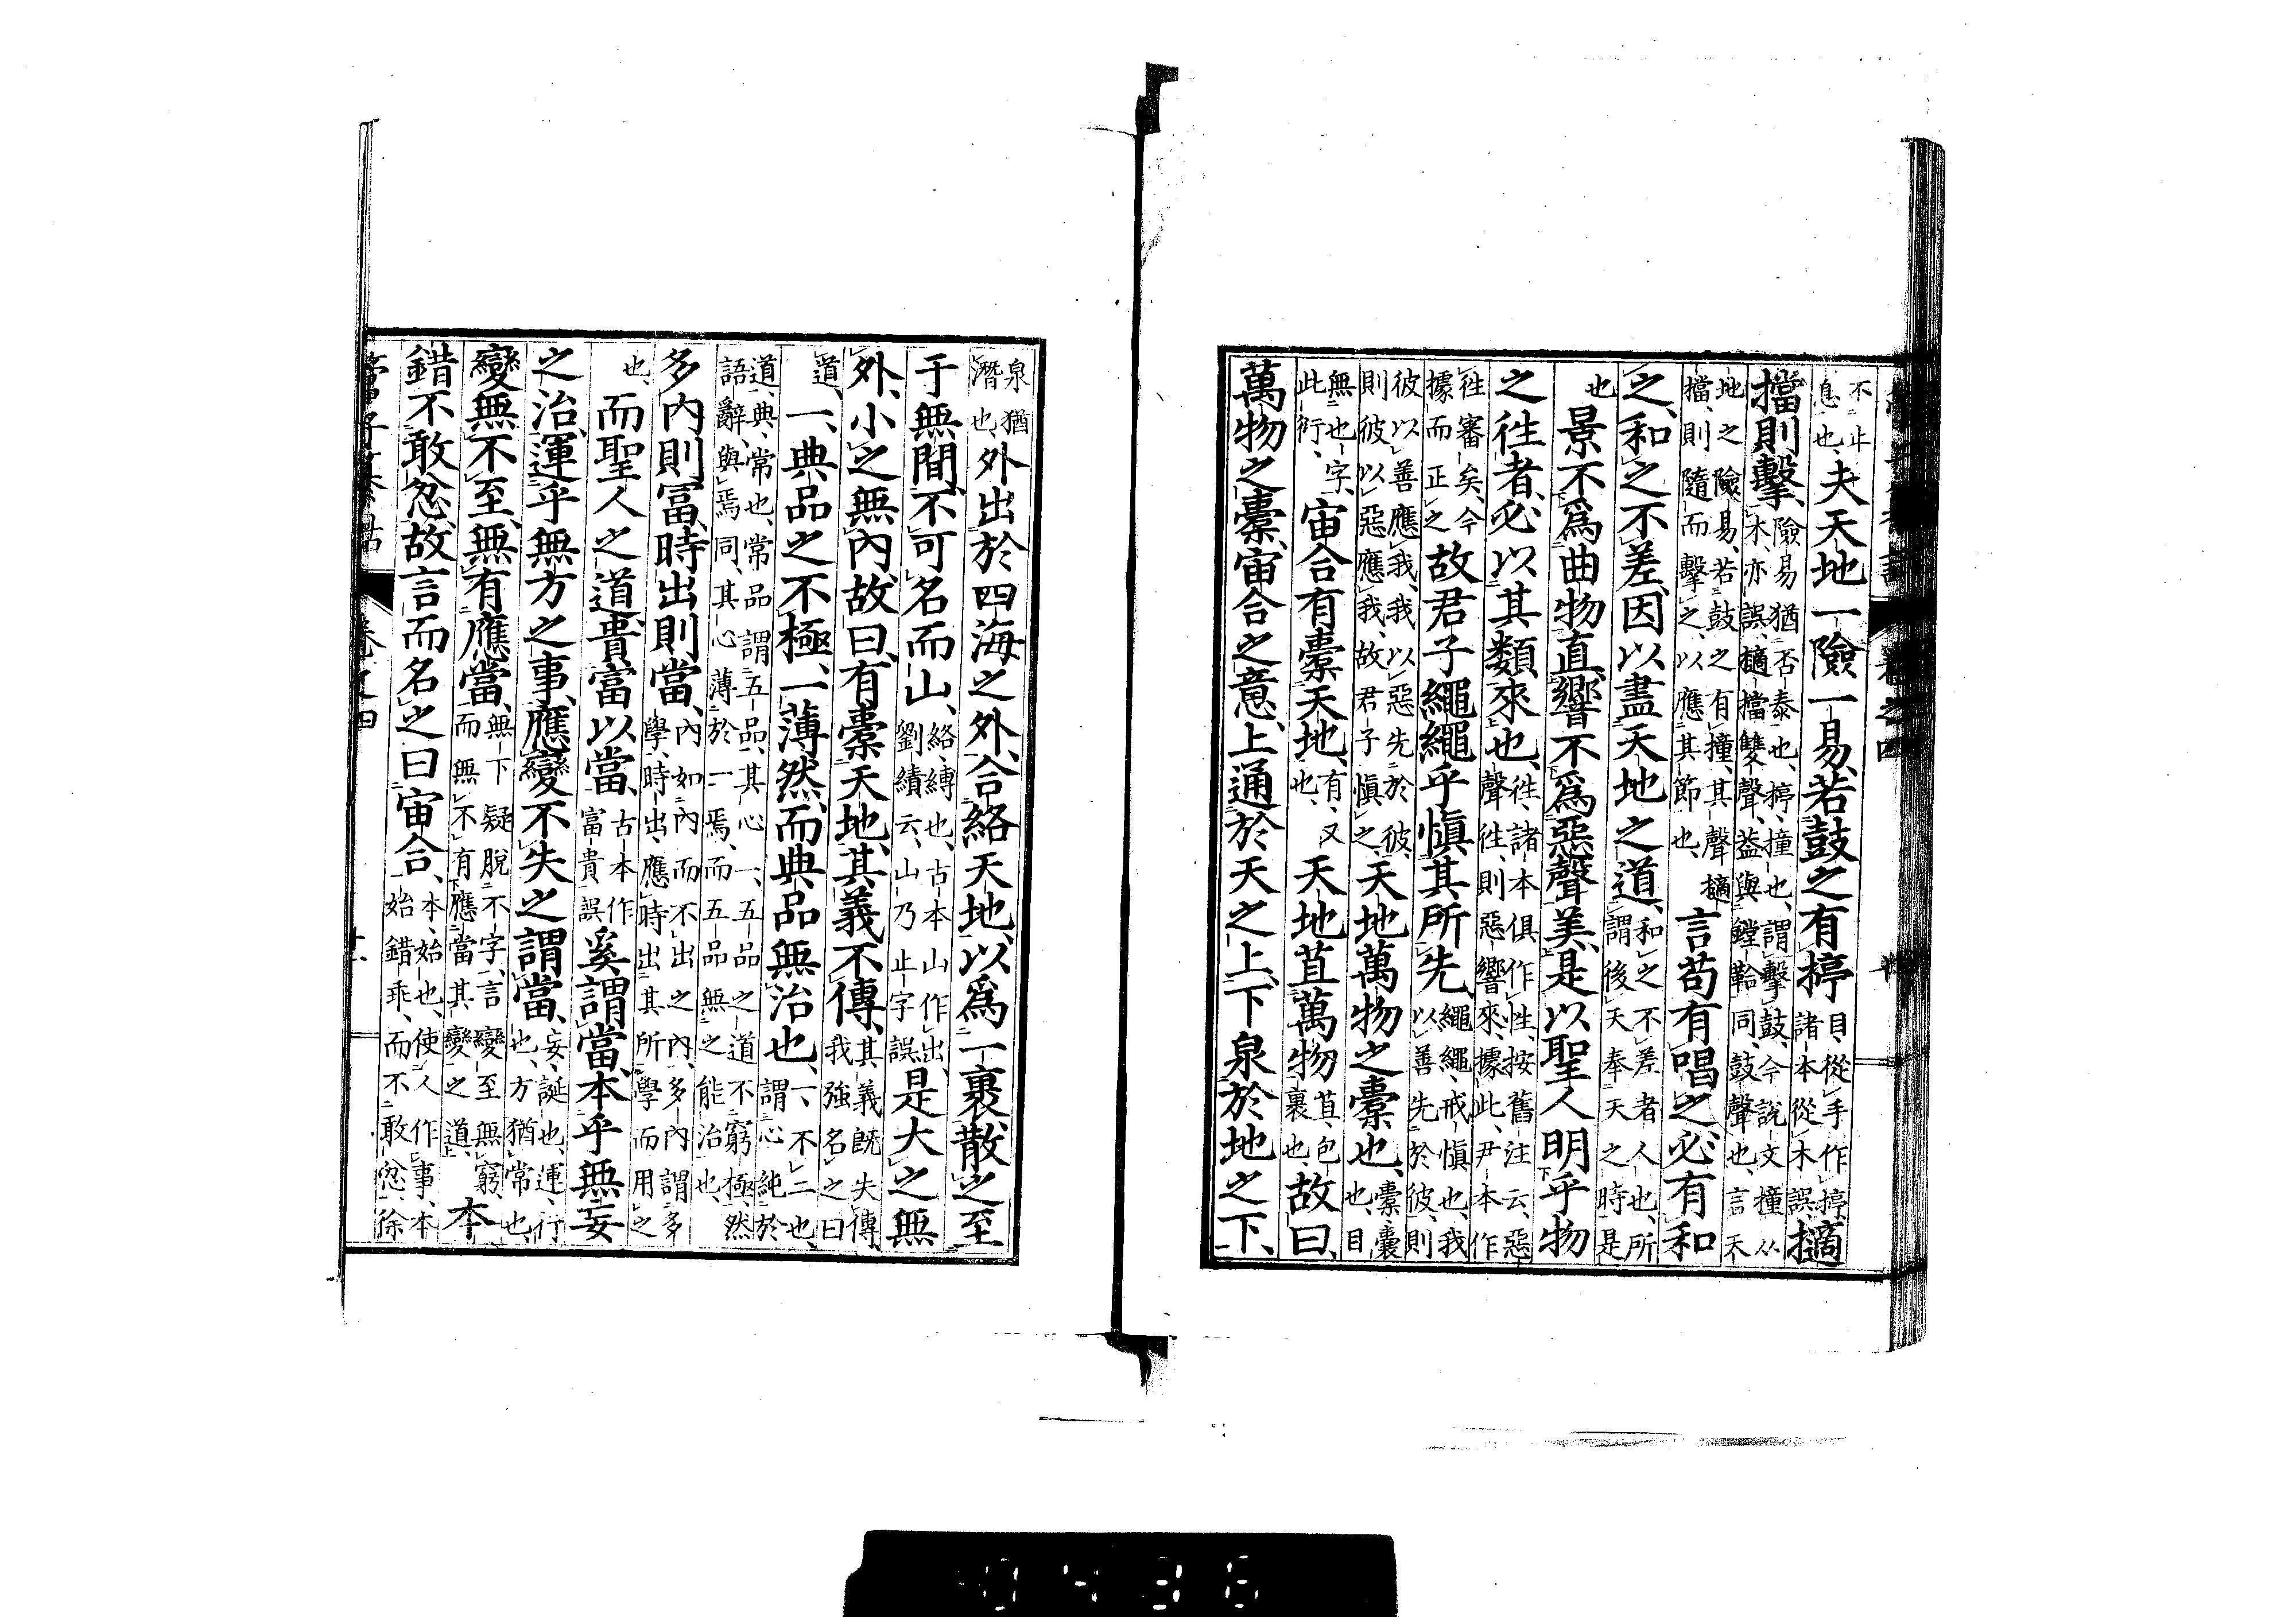 不止息也、夫天地一險一易、若鼓之有椁、目從手作㨃諸本從木誤、擿
擋則擊、險易猶否泰也、椁、撞也、謂擊鼓、今說文撞从木、亦誤、擿擋雙聲、葢與鏜鞈同、鼓聲也、言天
地之險易、若鼓之有撞、其聲擿擋、則隨而擊之、以應其節也、言苟有唱之、必有和
之、和之不差、因以盡天地之道、和之不差者人也、所謂後天奉天之時是
也景不爲曲物直、響不爲惡聲美、是以聖人明乎物
之徃者、必以其類來也、徃、諸本俱作性、按舊注云、惡聲徃、則惡響來、據此、尹本作
徃審矣、今據而正之故君子繩繩乎愼其所先、繩繩、戒愼也、我以善先於彼、則
彼以善應我、我以惡先於彼、則彼以惡應我、故君子愼之、天地萬物之橐也、橐、囊也、目
無也字、此衍、宙合有橐天地、有、又也、天地苴萬物苴、包裹也、故曰、
萬物之橐、宙合之意、上通於天之上、下泉於地之下、
泉猶潛也、外出於四海之外、合絡天地、以爲一裹、散之至
于無閒、不可名而山、絡、縛也、古本山作出、劉績云、山乃止字誤是大之無
外、小之無內、故曰、有橐天地、其義不傳、其義旣失傳、我強名之曰
道、一、典品之不極、一薄然、而典品無治也、一、不二也、謂心純於
道、典、常也、常品謂五品、其心一、五品之道不窮極、然語辭、與焉同、其心薄於一焉、而五品無之能治也、
多內則富、時出則當、內如內而不出之內、多內謂多學、時出、應時出其所學而用之
也、而聖人之道、貴富以當、古本作富貴誤奚謂當、本乎無妄
之治、運乎無方之事、應變不失之謂當、妄、誕也、運、行也、方猶常也、
變無不至、無有應當、無下疑脫不字、言變至無窮、而無不有應當其變之道、本
錯不敢忿、故言而名之曰宙合、本、始也、使人作事、本始錯乖、而不敢忿、徐
卷之四